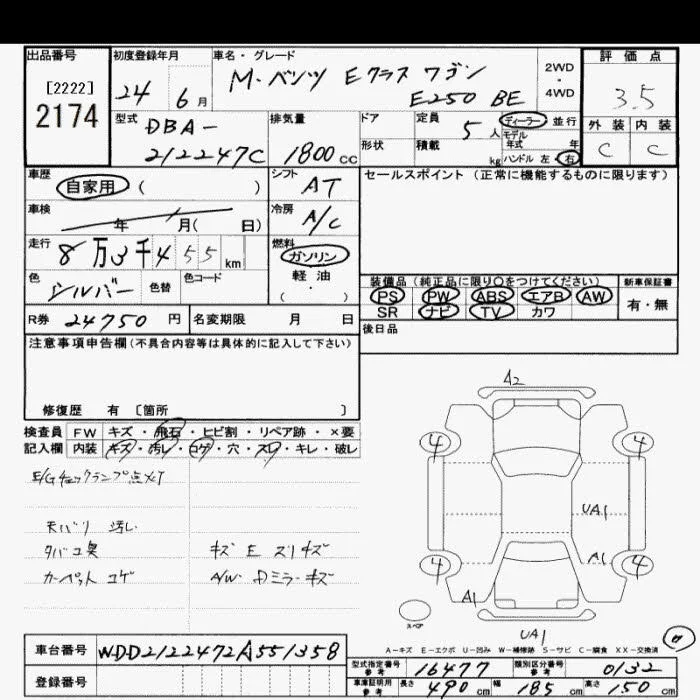 出品番号 初度登録年月 車名・グレード 2WD・4WD 評価点
[2222] 2174 24 6月 M・ベンツ Eクラス ワゴン 3.5
E250 BE
型式 排気量 ドア 定員 5人 ディーラー 並行 外装 内装
DBA- モデル年式 年
212247C 1800cc 形状 積載 kg ハンドル 左・右 C C
車歴 シフト セールスポイント (正常に機能するものに限ります)
自家用 ( ) AT
車検 年 月( 日) 冷房 A/C
走行 8万3千455km 燃料 ガソリン
軽油
( ・ )
色 シルバー 色替 色コード 装備品(純正品に限り〇をつけてください) 新車保証書
PS PW ABS エアB AW 有・無
SR ナビ TV カワ
R券 24750円 名変期限 月 日 後日品
注意事項申告欄(不具合内容等は具体的に記入して下さい)
修復歴 有 [箇所 ]
検査員 FW キズ・飛石・ヒビ割・リペア跡・×要
記入欄 内装 キズ・汚レ・コゲ・穴・スレ・キレ・破レ
E/Gチェックランプ点メT
天バリ 汚レ
タバコ臭 キズ E スリキズ
カーペット コゲ A/W・Dミラーキズ
A2
4 4
UA1
4 A1 4
A1
スペア
UA1
A-キズ E-エクボ U-凹み W-補修跡 S-サビ C-腐食 XX-交換済
車台番号 WDD2122472A551358
登録番号
型式指定番号 参考 16477 類別区分番号 参考 0132
車庫証明用 参考 長さ 490cm 幅 185cm 高さ 150cm